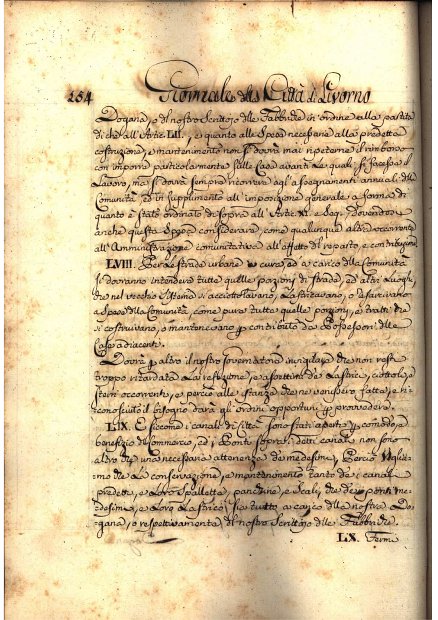 154 Giornale della Città di Livorno
Dogana, o dl nostro Scrittojo dlle Fabbriche in ordine alla portata
di che all' Artic. LII., e quanto alle Spese necessarie alla predetta
costruzione, e mantenimento non si dovrà mai ripetere il rimborso
con imporre particolarmente sulle Case avanti le quali si facesse il
Lavoro, ma si dovrà sempre ricorrere agl' Assegnamenti annuali dlla
Comunità, ed in supplemento all' imposizione generale a forma di
quanto è stato ordinato di sopra all' Artic. XI. e Seg., dovendosi
anche questa Spesa considerare, come qualunque altra occorrente
all' Amministrazione comunitativa all' effetto dl reparto, e contribuzione
LVIII. Per le strade urbane a cura, ed a carico dlla Comunità
si dovranno intendere tutte quelle porzioni di strade, ed altri Luoghi,
che nel vecchio Sistema si acciottolavano, Lastricavano, o
a Spese dlla Comunità, come pure tutte quelle porzioni, e tratti che
si costruivano, o mantenevano p contributo de Possessori dlle
Case adiacenti.
Dovrà p altro il nostro Governatore invigilare che non resti
troppo ritardata la refezione, e assettime de Lastrici, ciottoli, e
sterri occorrenti, e perciò alle istanze che ne venissero fatte, e ri-
conosciuto il bisogno darà gli ordini opportuni p provvedere.
LIX. E siccome i canali di Città sono stati aperti p comodo, e
benefizio di Commercio, ed i Ponti sopra i detti canali non sono
altro che una necessaria attenenza de medesimi, Perciò Voglia-
mo che la conservazione, e mantenimento tanto de i canali
predetti, e loro Spallette, panchine, e Scali, che de ponti me-
desimi, e loro Lastrico, sia tutto a carico dlla nostra Do-
gana, o respettivamente dl nostro Scrittojo dlle Fabbriche.
LX. Ferme